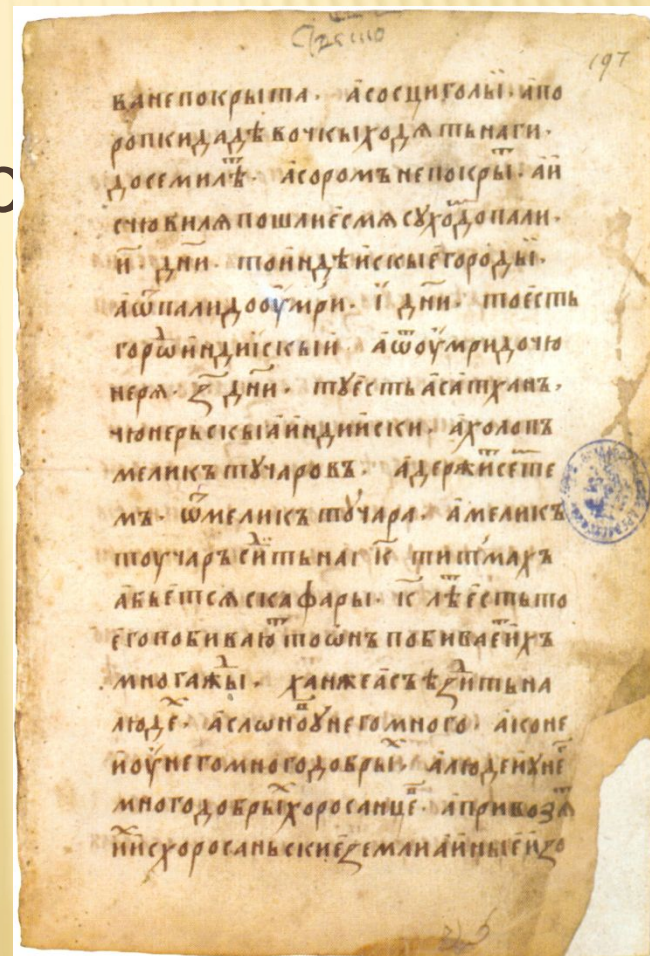 о
197
ва не покрыта. а сосци голы. а по
ропкы да дѣвочкы ходят̾ь наги.
до семи лѣт̾. а соромъ не покрыт̾. а и
с чювиля пошли есмя сухом до пали.
и҃. дни. то индѣискые городы.
а ѿ пали до оумри. і҃ дни. то есть
гор̾ѡ индиискыи. а ѿ оумри до чю
неря. ѕ҃ дни. ту есть асатхан.
чюнерьскыа индииски. а холопъ
меликътучаровъ. а держит̾ сет̾ е
мъ. ѿ меликътучара. а меликъ
тоучаръ сѣдить на к҃ ти тмахъ
а бьется с кафары. к҃ лѣт̾ есть то
его побиваю̾т то ѡнъ побивает̾ ихъ
многажды. ханже ас ѣздить на
людех̾. а слонов̾ оу него много. а коне
и оу него много добрых̾. а людеи у не̾
много добрых̾ хоросанцев̾. а привозят̾
их̾ ис хоросаньские земли а иные из о